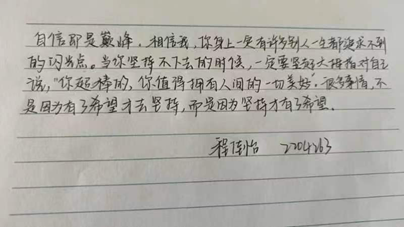 自信即是巅峰，相信我，你身上一定有许多别人一生都追求不到
的闪光点。当你坚持不下去的时候，一定要竖起大拇指对自己
说，"你超棒的，你值得拥有人间的一切美好"。很多事情，不
是因为有了希望才去坚持，而是因为坚持才有了希望。
程佳怡 2204263